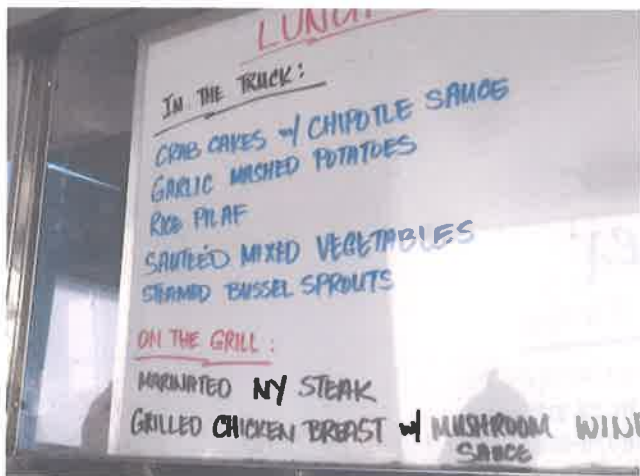 LUNCH
IN THE TRUCK:
CRAB CAKES w/ CHIPOTLE SAUCE
GARLIC MASHED POTATOES
RICE PILAF
SAUTEÉD MIXED VEGETABLES
STEAMED BUSSEL SPROUTS
ON THE GRILL:
MARINATED NY STEAK
GRILLED CHICKEN BREAST w/ MUSHROOM WINE
SAUCE